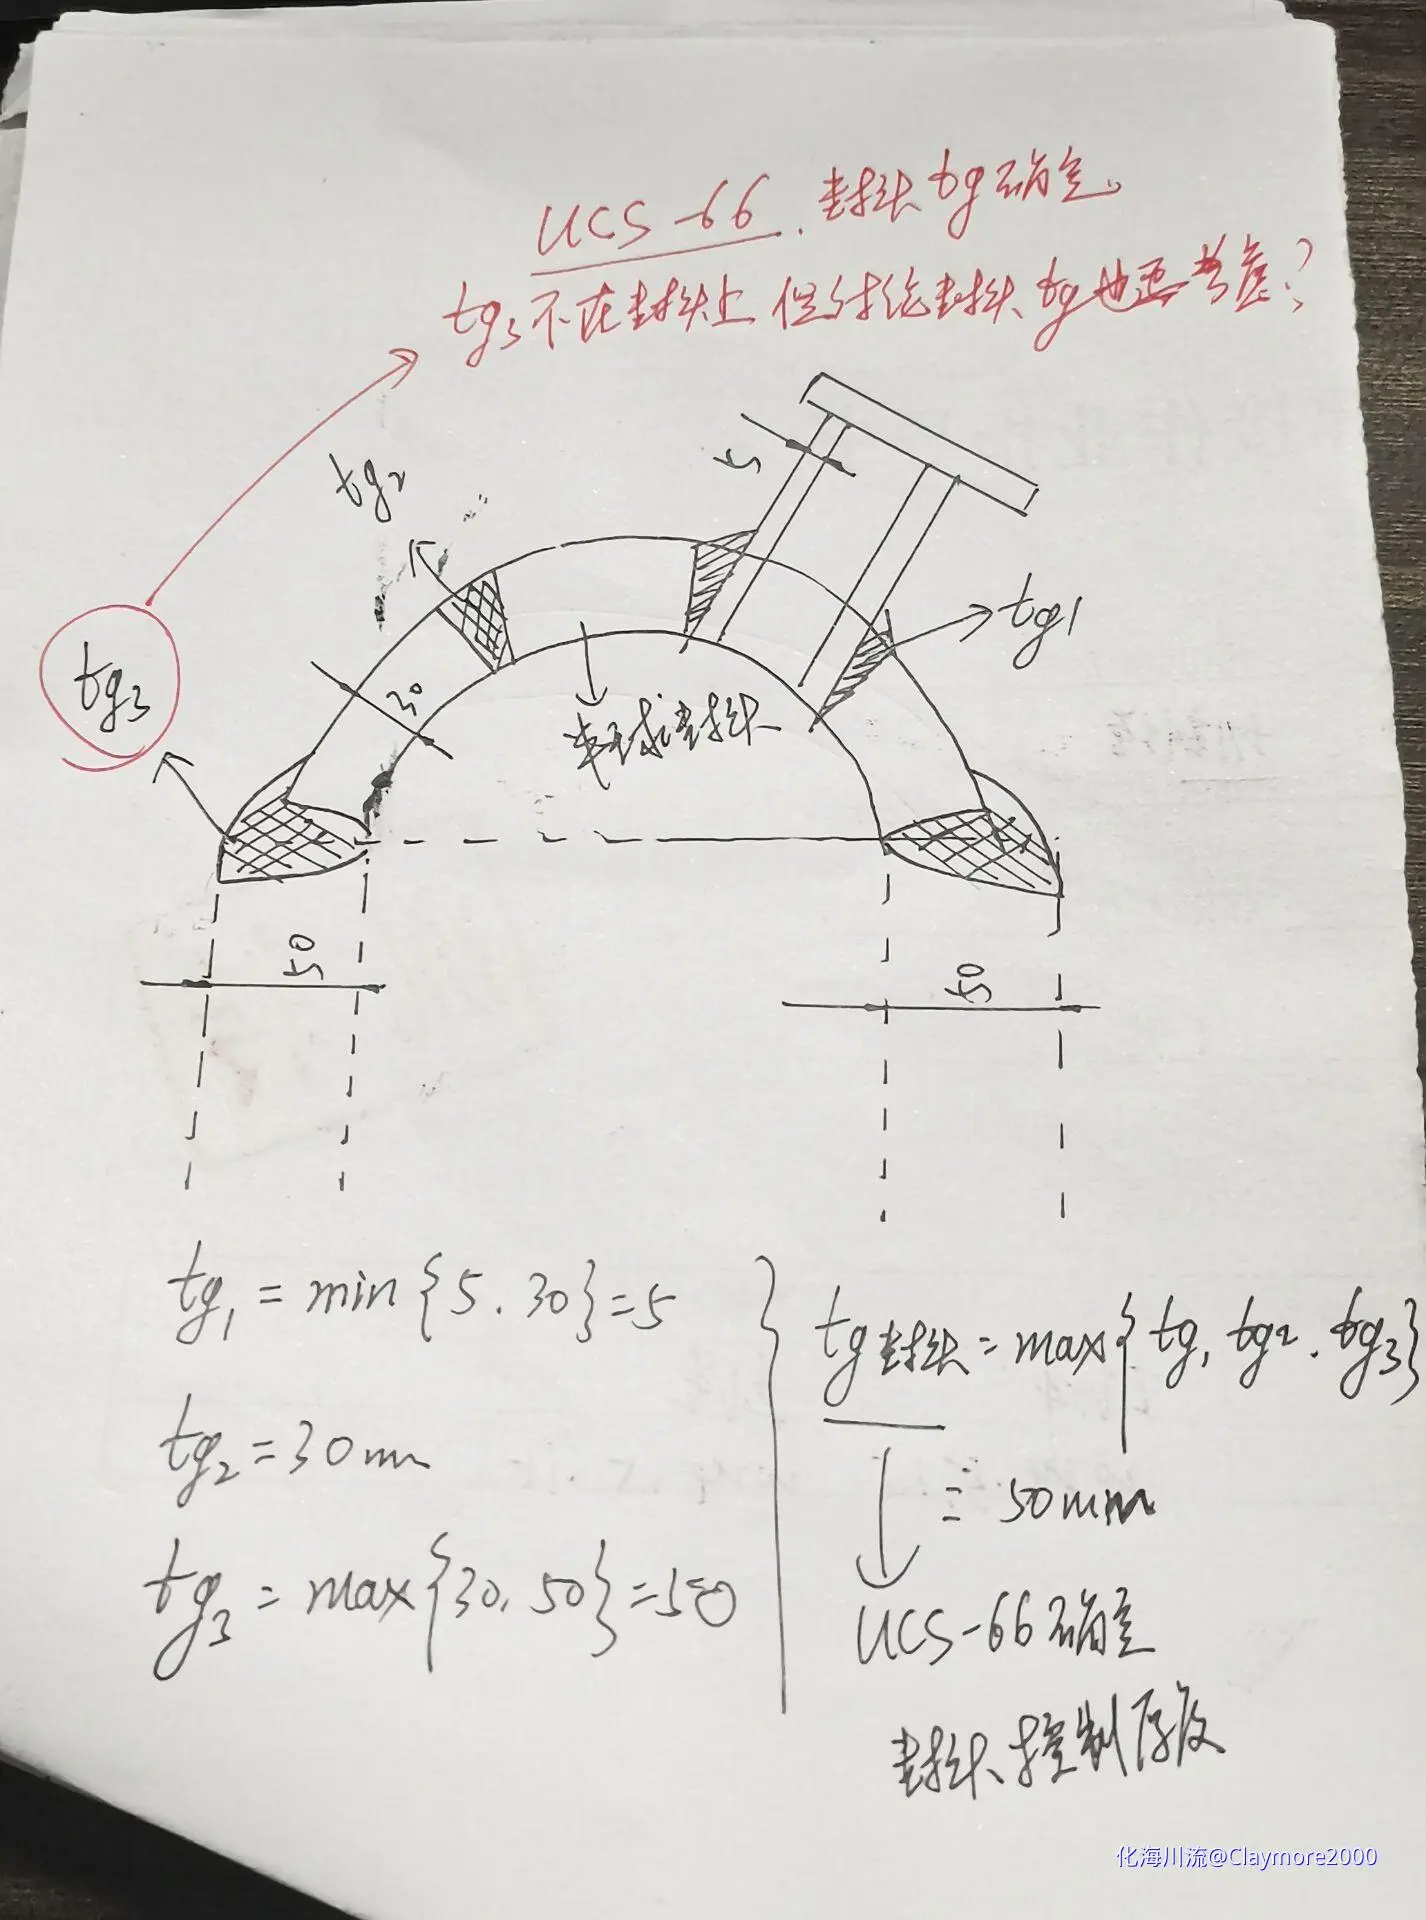 UCS-66. 封头tg确定。
tg3不在封头上 但讨论封头tg也要考虑?
tg2
5
tg1
tg3
30
半球封头
50
50
tg1 = min{5. 30}=5
tg2=30mm
tg3 = max{30. 50}=50
tg封头=max{tg1 tg2. tg3}
= 50mm
UCS-66确定
封头控制厚度
化海川流@Claymore2000